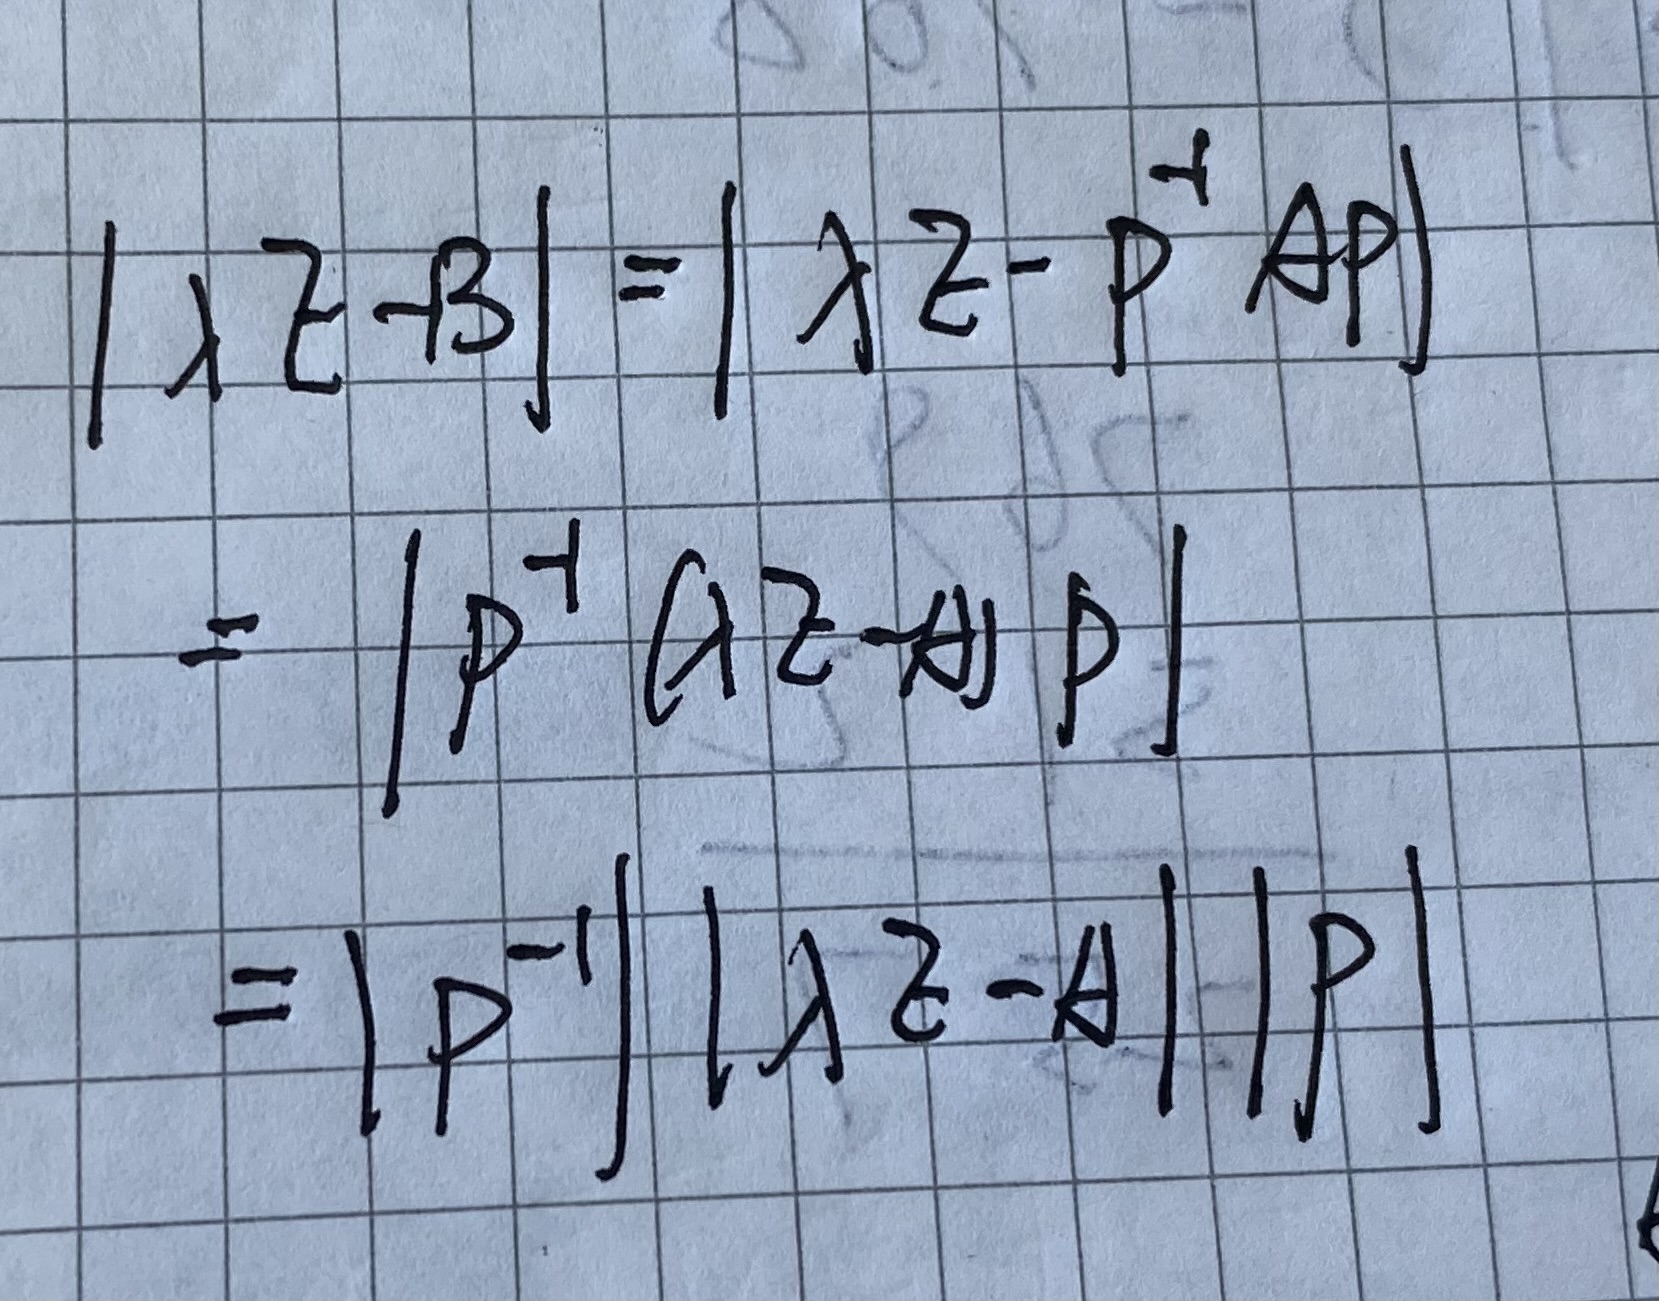 |λE-B| = |λE-P⁻¹AP|
= |P⁻¹(λE-A)P|
= |P⁻¹||λE-A||P|